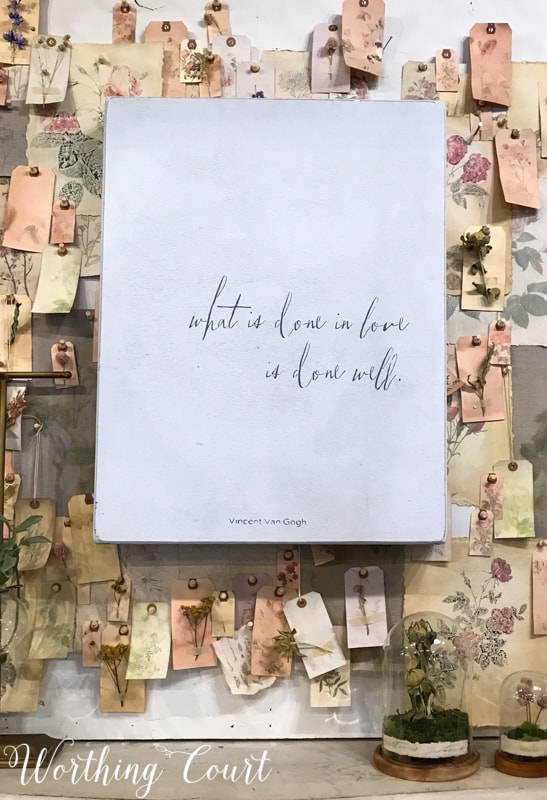 what is done in love
is done well.
Vincent Van Gogh
Worthing Court